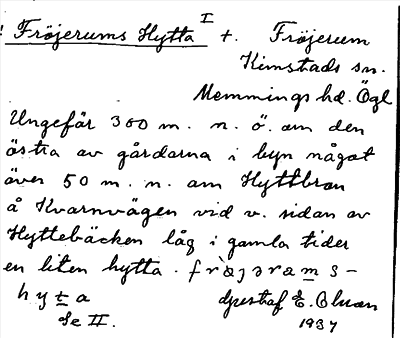 ! Fröjerums Hytta I +. Fröjerum
Kimstads sn.
Memmings hd. Ögl
Ungefär 300 m. n. ö. om den
östra av gårdarna i byn något
över 50 m. n. om Hyttbron
å Kvarnvägen vid v. sidan av
Hyttebäcken låg i gamla tider
en liten hytta. frὰjərəms-
hyta
Gustaf E. Olson
Se II.
1937